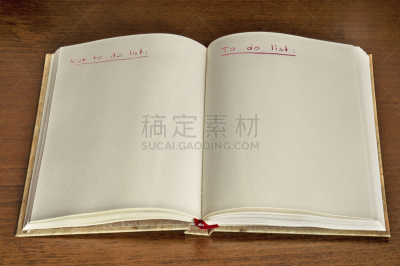 Not to do list:
To do list:
搞定素材
SUCAI.GAODING.COM